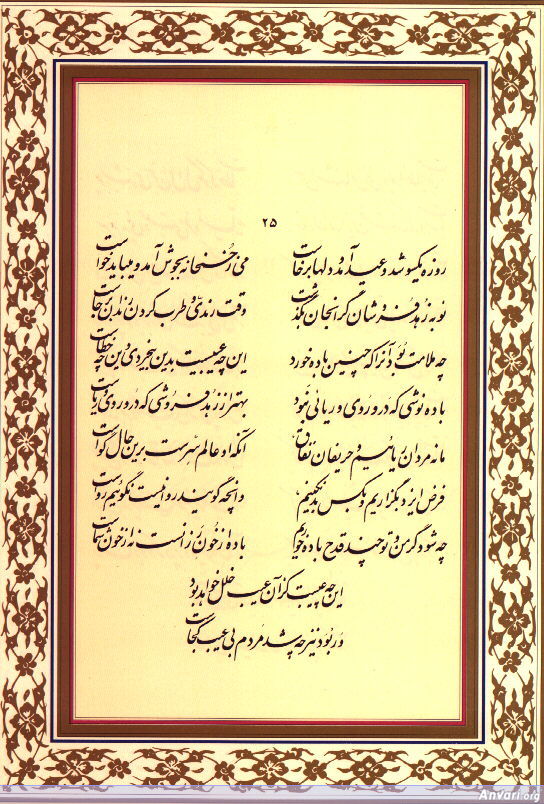 ۲۵
روزه یکسو شد و عید آمد و دلها برخاست می ز خمخانه بجوش آمد و میباید خواست
نوبهٔ زهد فروشان گرانجان بگذشت وقت رندی و طرب کردن رندان برجاست
چه ملامت بود آنرا که چنین باده خورد این چه عیبست بدین بیخردی وین چه خطاست
باده نوشی که درو روی و ریائی نبود بهتر از زهد فروشی که درو روی و ریاست
ما نه مردان ریائیم و حریفان نفاق آنکه او عالم سرست برین حال گواست
فرض ایزد بگزاریم و بکس بد نکنیم وانچه گویند روا نیست نگوئیم رواست
چه شود گر من و تو چند قدح باده خوریم باده از خون رزانست نه از خون شماست
این چه عیبست کزان عیب خلل خواهد بود
ور بود نیز چه شد مردم بی عیب کجاست
Anvari.org